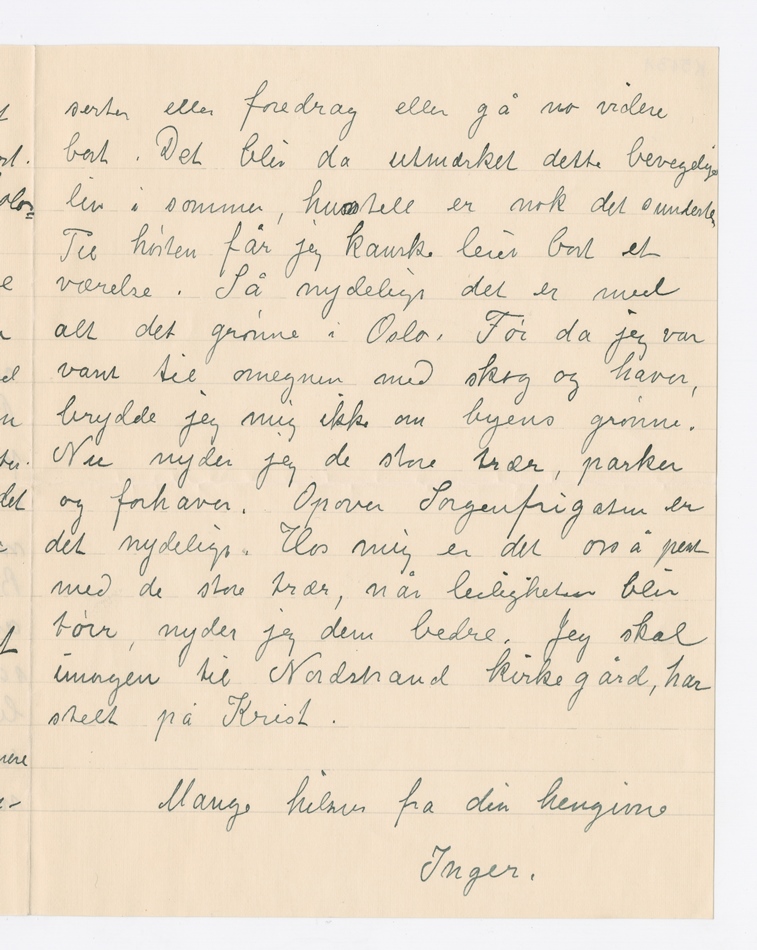 serter eller foredrag eller gå no videre
bort. Det blir da utmærket dette bevegelige
liv i sommer, husstell er nok det sundeste
Til høsten får jeg kanske leiet bort et
værelse. Så nydeligt det er med
alt det grønne i Oslo. Før da jeg var
vant til omegnen med skog og haver,
brydde jeg mig ikke om byens grønne.
Nu nyder jeg de store trær, parker
og forhaver. Opover Sorgenfrigaten er
det nydeligt. Hos mig er det også pent
med de store trær, når leiligheten blir
tørr, nyder jeg dem bedre. Jeg skal
imorgen til Nordstrand kirkegård, har
stelt på Krist.
Mange hilsner fra din hengivne
Inger.